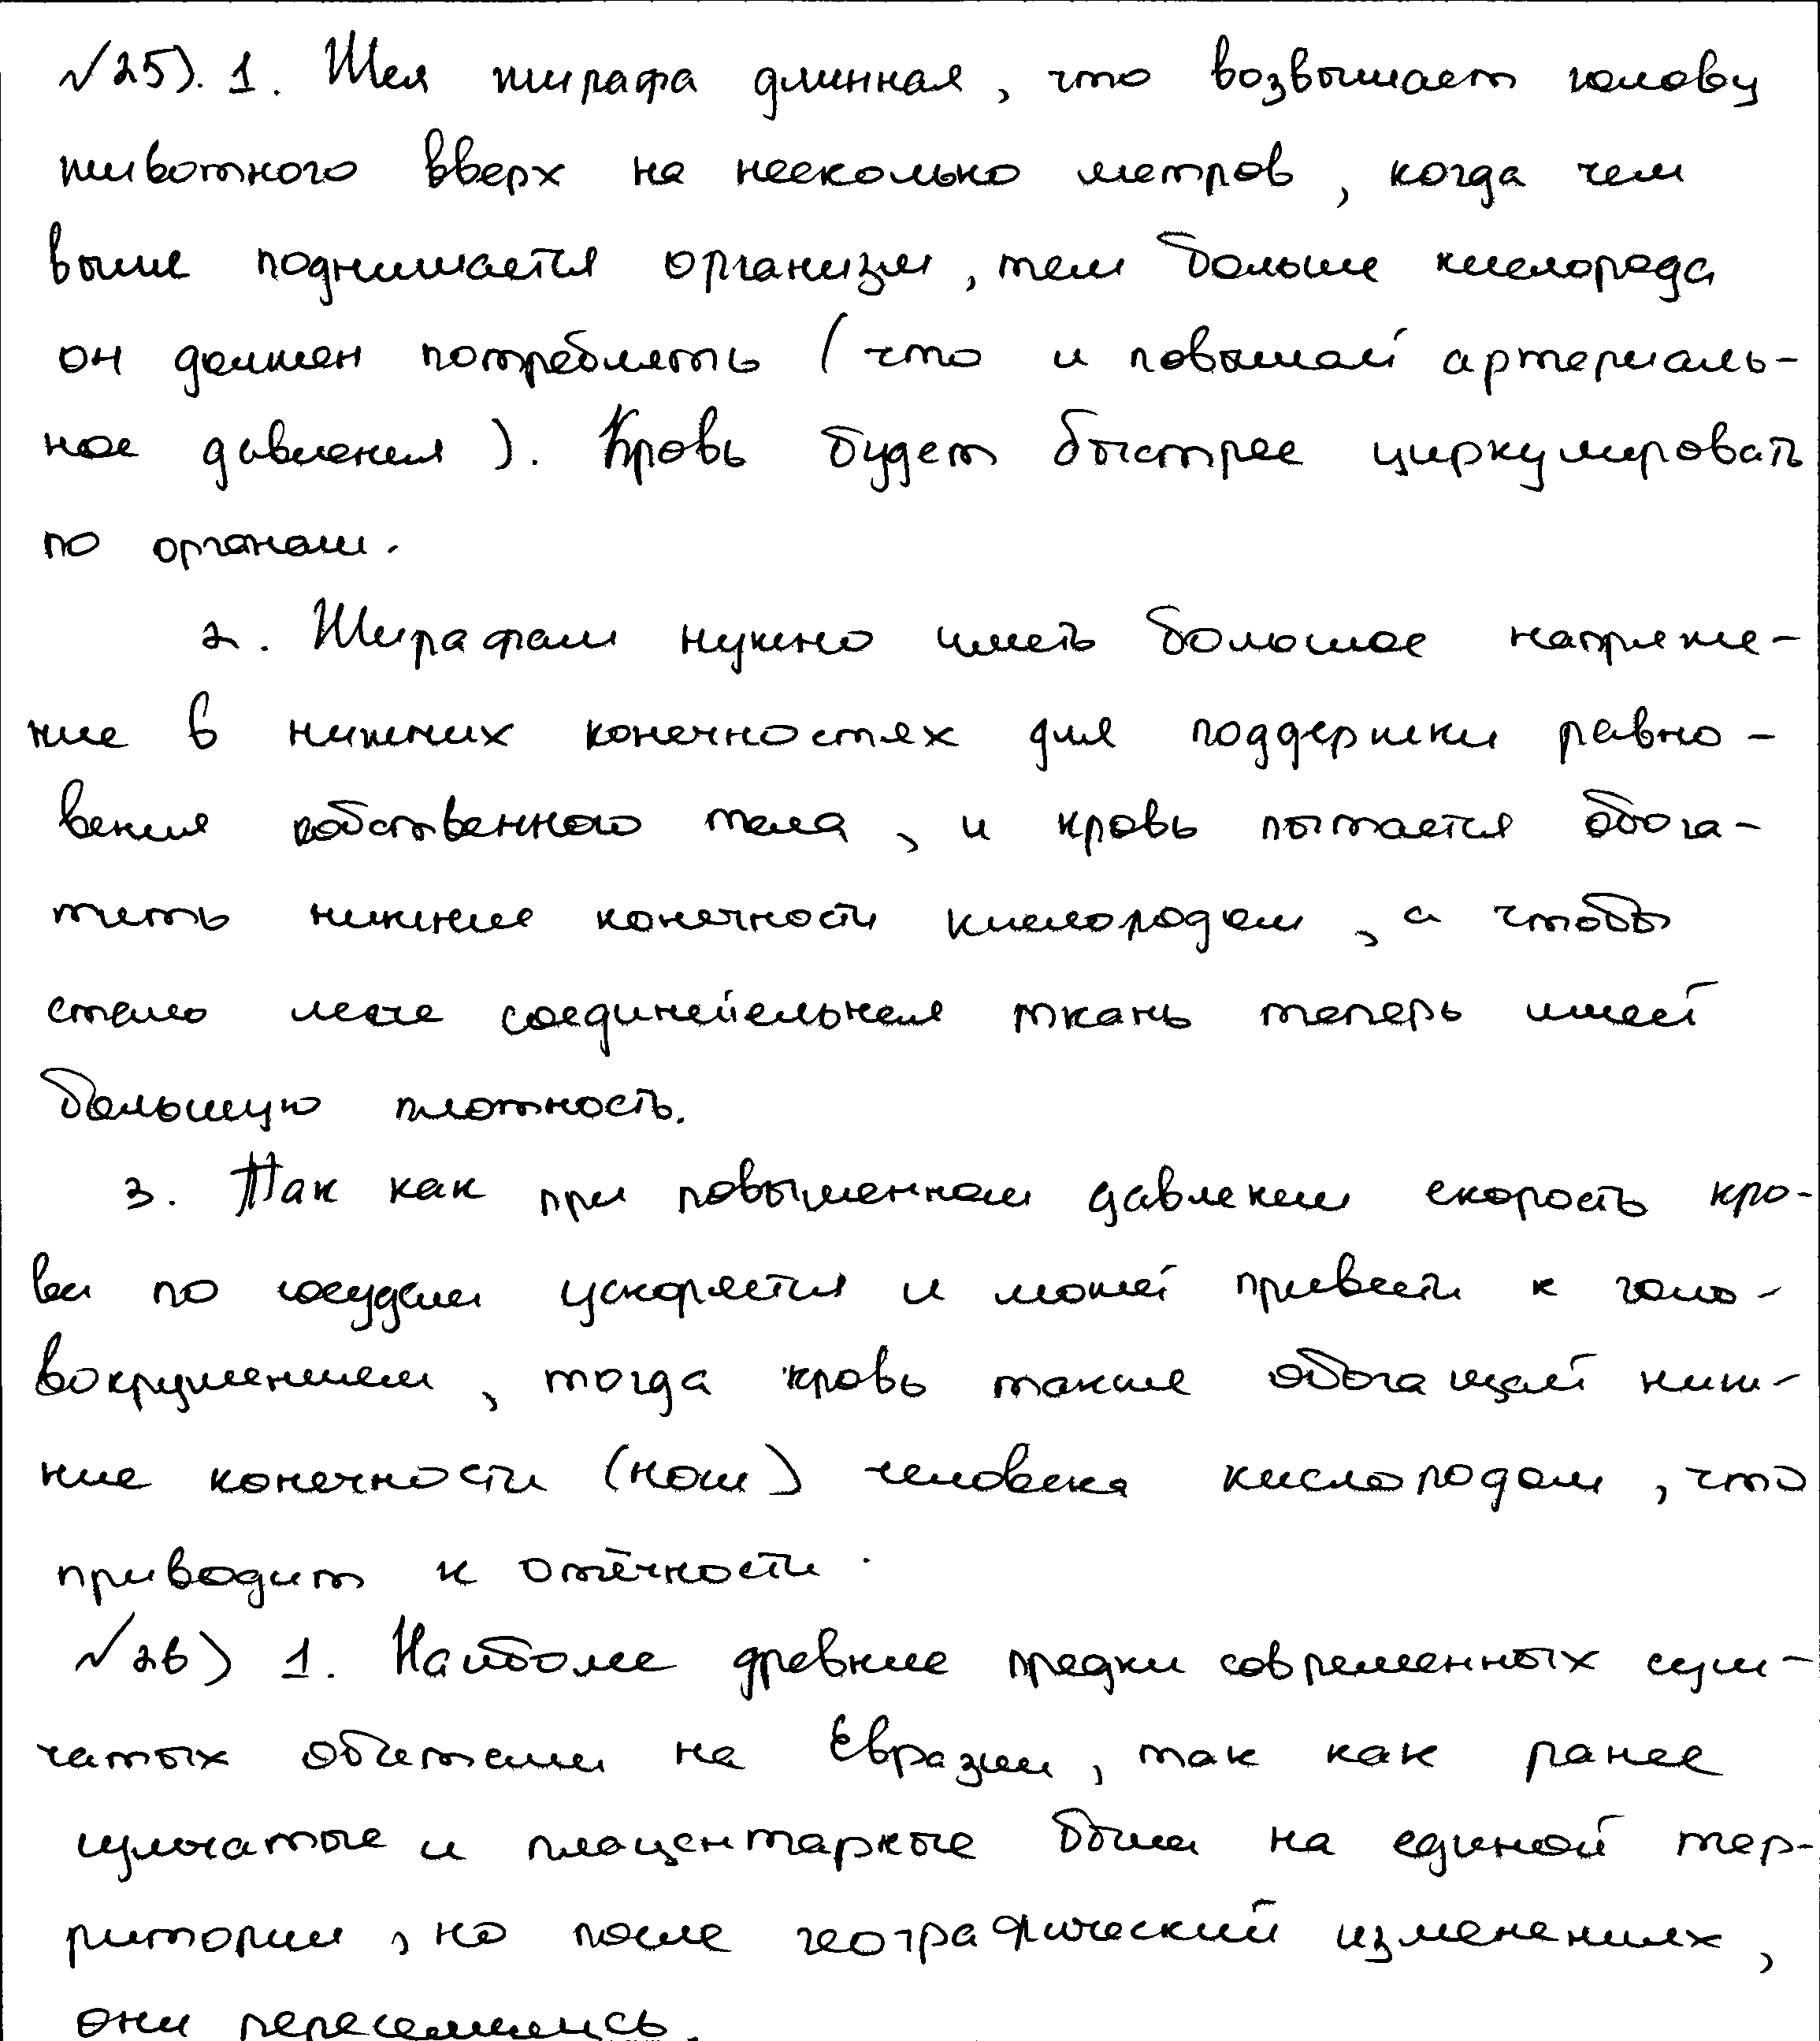 √25). 1. Шея жирафа длинная, что возвышает голову
животного вверх на несколько метров, когда чем
выше поднимается организм, тем больше кислорода
он должен потреблять (что и повышает артериаль-
ное давления). Кровь будет быстрее циркулировать
по органам.
2. Жирафам нужно иметь большое напряже-
ние в нижних конечностях для поддержки равно-
весия собственного тела, и кровь пытается обога-
тить нижние конечности кислородом, а чтобы
стало легче соединительная ткань теперь имеет
большую плотность.
3. Так как при повышенном давлении скорость кро-
ви по сосудам ускоряется и может привести к голо-
вокружением, тогда кровь также обогащает ниж-
ние конечности (ноги) человека кислородом, что
приводит к отёчности.
√26) 1. Наиболе древние предки современных сум-
чатых обитали на Евразии, так как ранее
сумчатые и плацентарные были на единой тер-
ритории, но после географический изменениях,
они переселились.